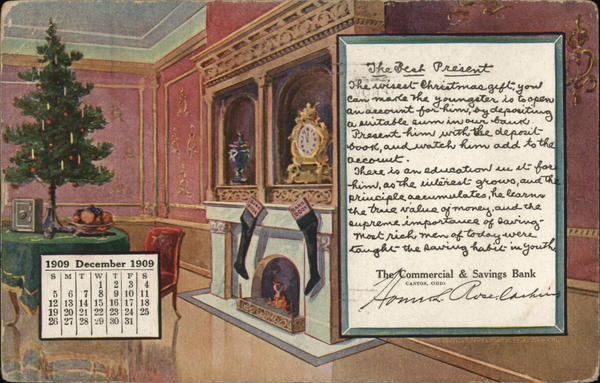 The Best Present
The wisest Christmas gift, you
can make the youngster is to open
an account for him, by depositing
a suitable sum in our bank.
Present him with the deposit
book, and watch him add to the
account.
There is an education in it for
him, as the interest grows, and the
principle accumulates, he learns
the true value of money and the
supreme importance of saving
Most rich men of today were
taught the saving habit in youth
The Commercial & Savings Bank
CANTON, OHIO
Rose, Cashier
1909 December 1909
S M T W T F S
1 2 3 4
5 6 7 8 9 10 11
12 13 14 15 16 17 18
19 20 21 22 23 24 25
26 27 28 29 30 31